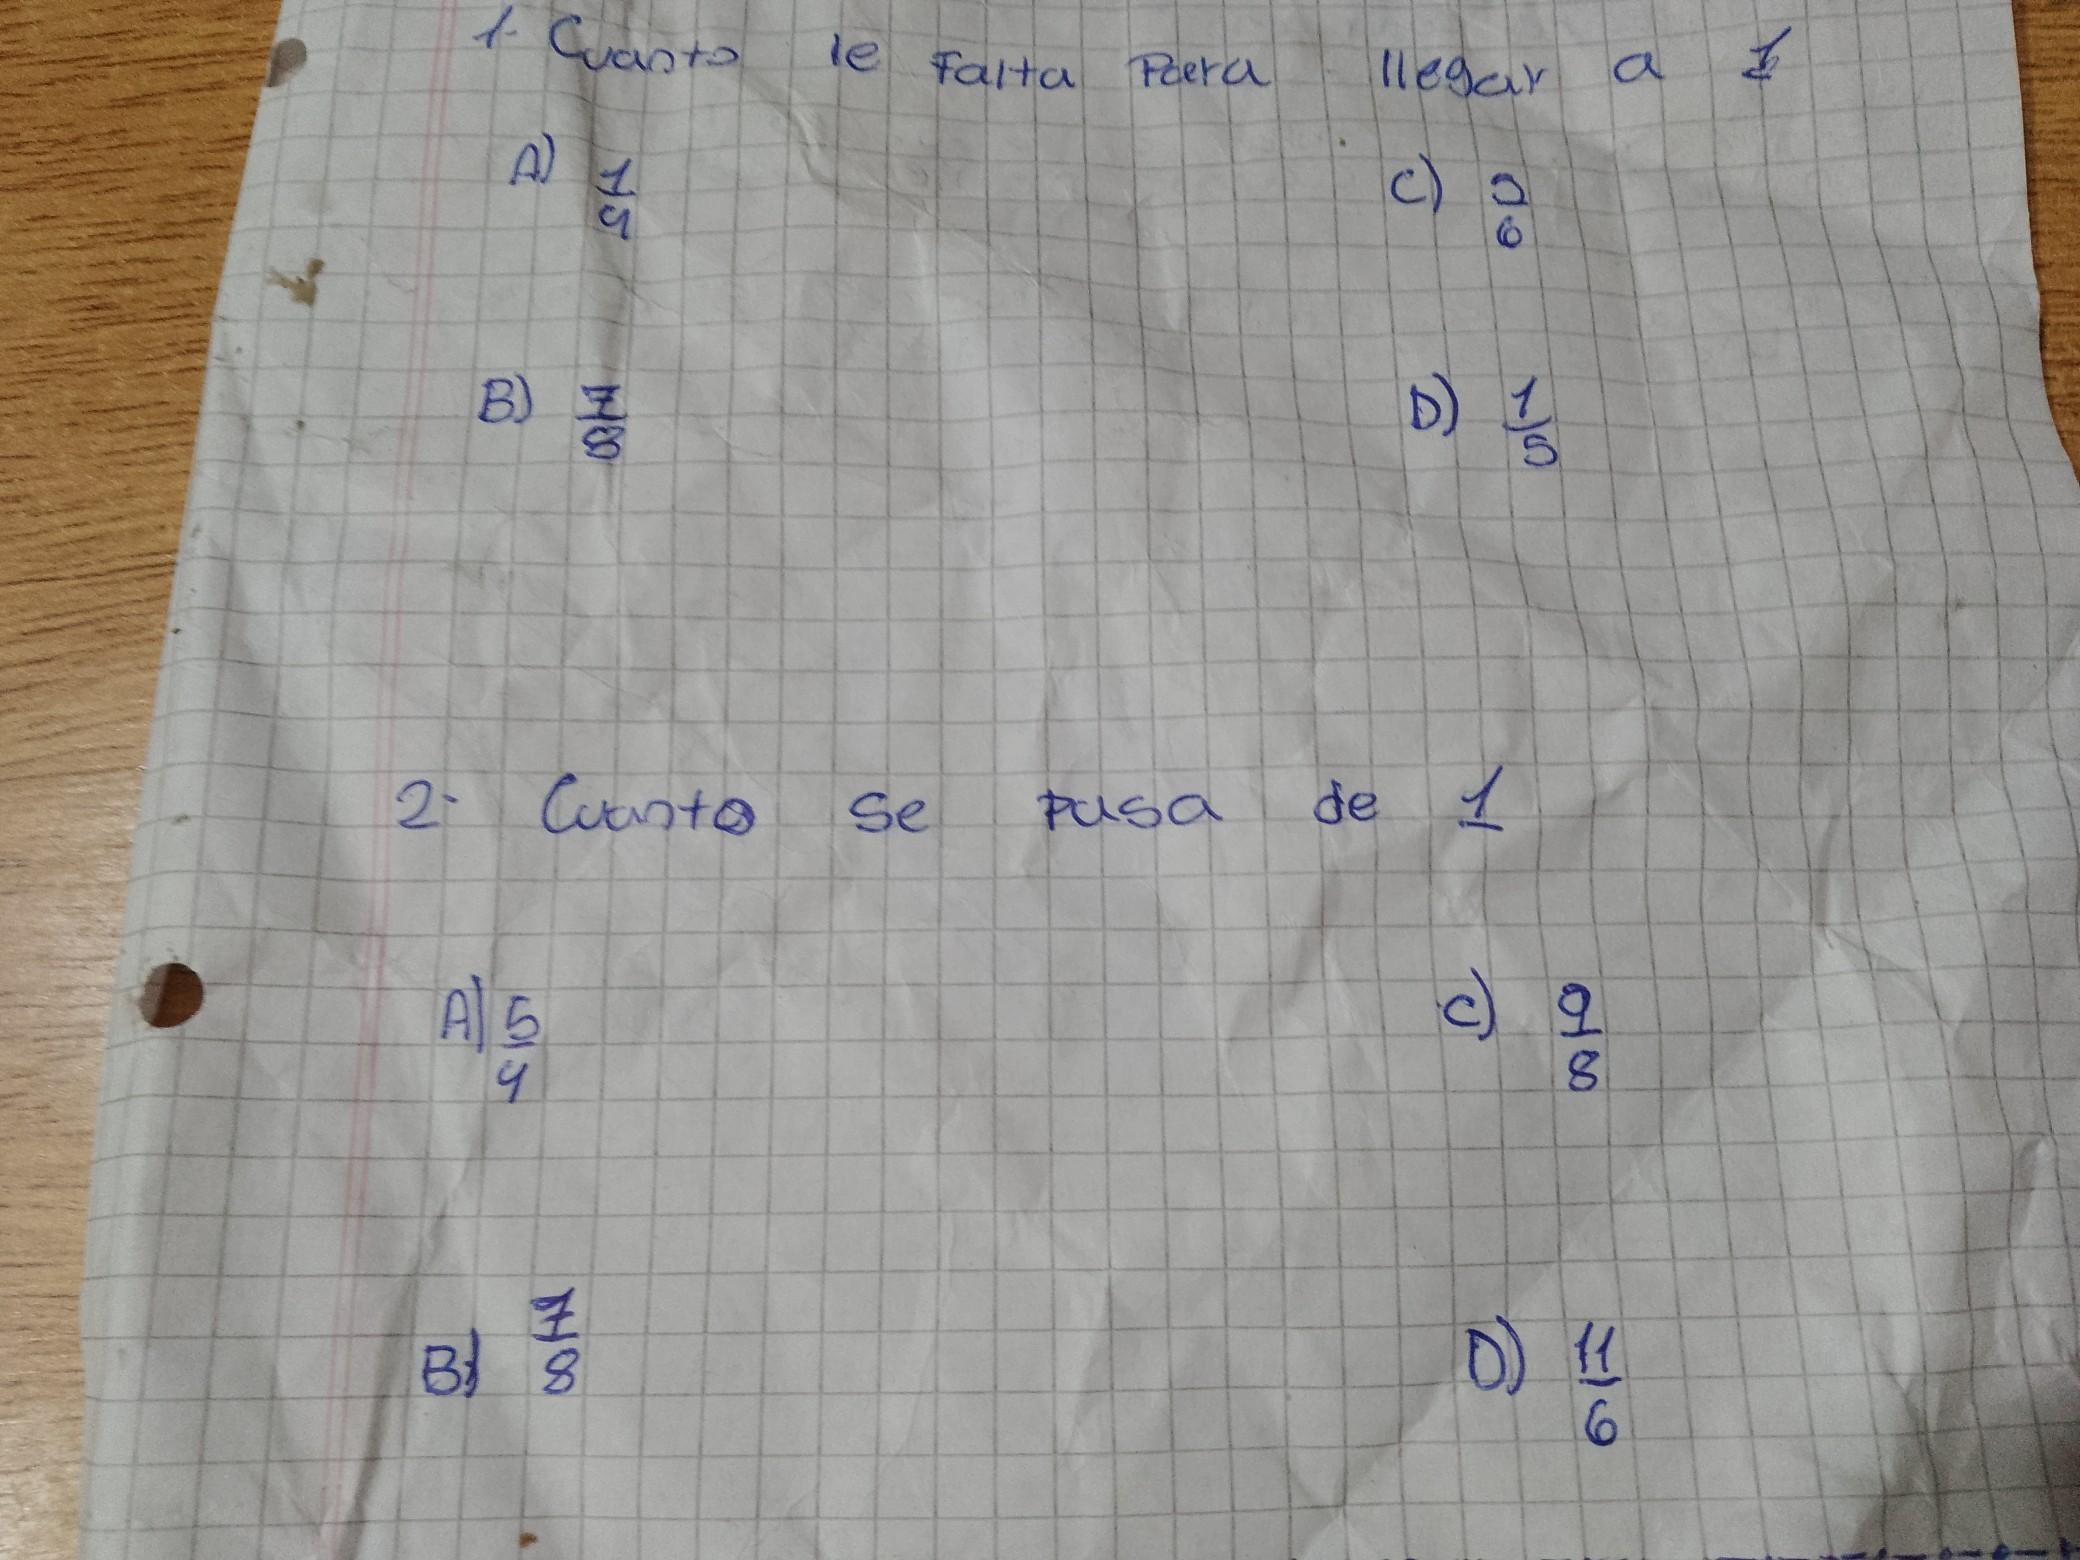 1- Cuanto le Falta Para llegar a 1
A) 1/4
C) 2/6
B) 7/8
D) 1/5
2- Cuanto se pasa de 1
A) 5/4
C) 9/8
B) 7/8
D) 11/6